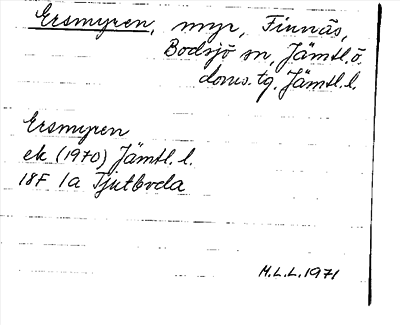 Ersmyren, myr, Finnäs,
Bodsjö sn, Jämtl. ö.
doms. tg. Jämtl. l.
Ersmyren
ek (1970) Jämtl. l.
18F 1a Tjutboda
M.L.L. 1971